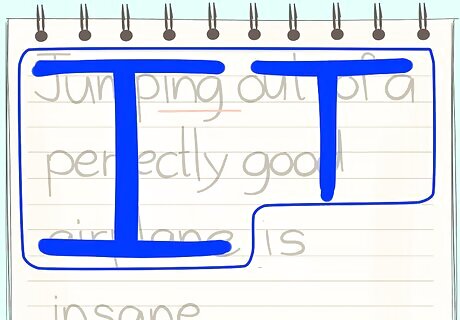 IT
Jumping out of a
perfectly good
airplane is
insane